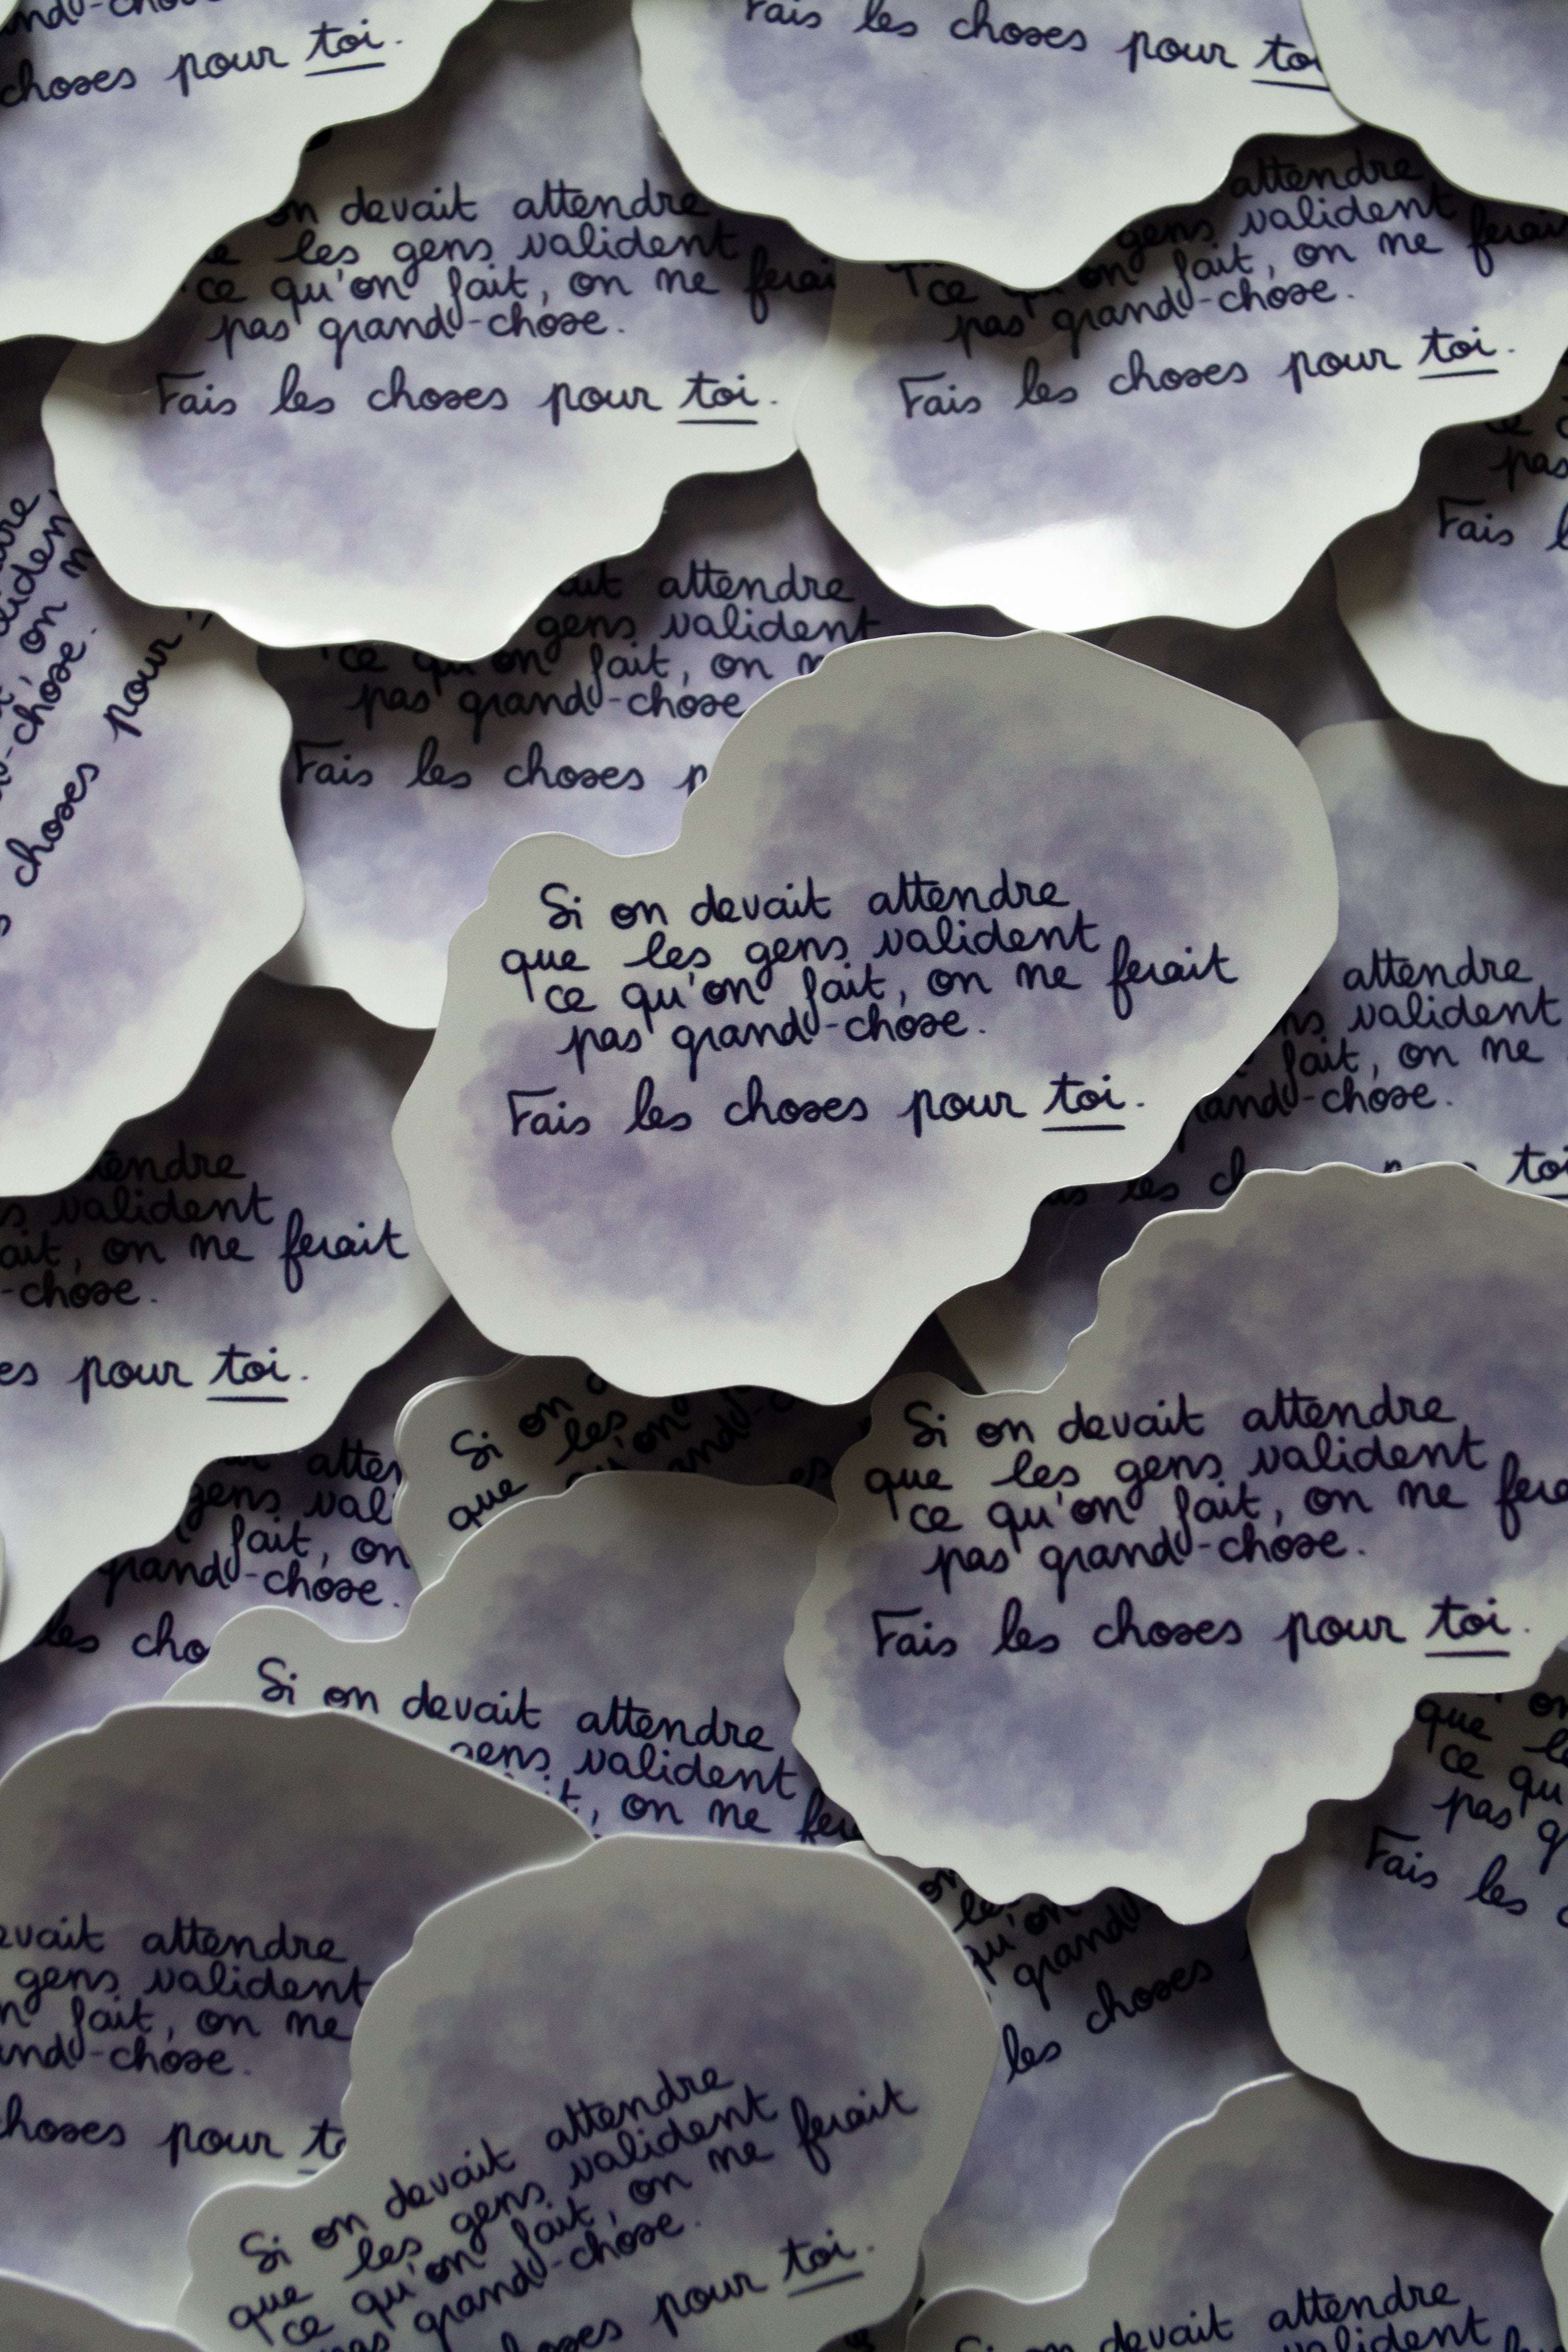 nd-chose.
choses pour toi.
Fais les choses pour toi
on devait attendre
les gens valident
ce qu'on fait, on ne ferai
pas grand-chose.
Fais les choses pour toi.
attendre
gens valident
ce qu'on fait, on ne ferai
pas grand-chose.
Fais les choses pour toi.
pas
Fais
on
-chose.
choses pour
attendre
gens valident
ce qu'on fait, on
pas grand-chose
Fais les choses
Si on devait attendre
que les gens valident
ce qu'on fait, on ne ferait
pas grand-chose.
Fais les choses pour toi.
attendre
valident
fait, on ne
grand-chose.
les toi
valident
on ne ferait
-chose.
pour toi.
Si on
que les
qu'on
gens
fait, on
grand-chose.
les
Si on devait attendre
que les gens valident
ce qu'on fait, on ne
pas grand-chose.
Fais les choses pour toi.
Si on devait attendre
gens valident
on ne
attendre
gens valident
fait, on ne
-chose.
choses pour
que
ce qu
pas
Fais les
les
qu'on
grand
les choses
Si on devait attendre
que les gens valident
ce qu'on fait, on ne ferait
pas grand-chose.
choses pour toi.
Si on devait attendre
valident